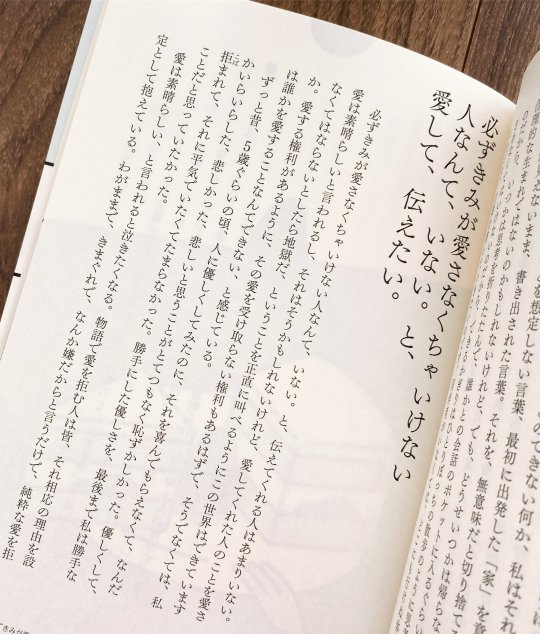 とのできない何か、私はそれ
を想定しない言葉、最初に出発した「家」を意
いまま、書き出された言葉、それを、無意味だと切り捨て
必ずきみが愛さなくちゃいけない
人なんて、いない。と、
愛して、伝えたい。
必ずきみが愛さなくちゃいけない人なんて、いない。と、伝えてくれる人はあまりいない。
愛は素晴らしいと言われるし、それはそうかもしれないけれど、愛してくれた人のことを愛さ
なくてはならないとしたら地獄だ、ということを正直に叫べるようにこの世界はできています
か。愛する権利があるように、その愛を受け取らない権利もあるはずで、そうでなくては、私
は誰かを愛することなんてできない、と感じている。
ずっと昔、5歳ぐらいの頃、人に優しくしてみたのに、それを喜んでもらえなくて、なんだ
かいらいらした、悲しかった、悲しいと思うことがとてつもなく恥ずかしかった。優しくして、
拒まれて、それに平気でいたくてたまらなかった。勝手にした優しさを、最後まで私は勝手な
ことだと思っていたかった。
愛は素晴らしい、と言われると泣きたくなる。物語で愛を拒む人は皆、それ相応の理由を設
定として抱えている。わがままで、きまぐれで、なんか嫌だからと言うだけで、純粋な愛を拒